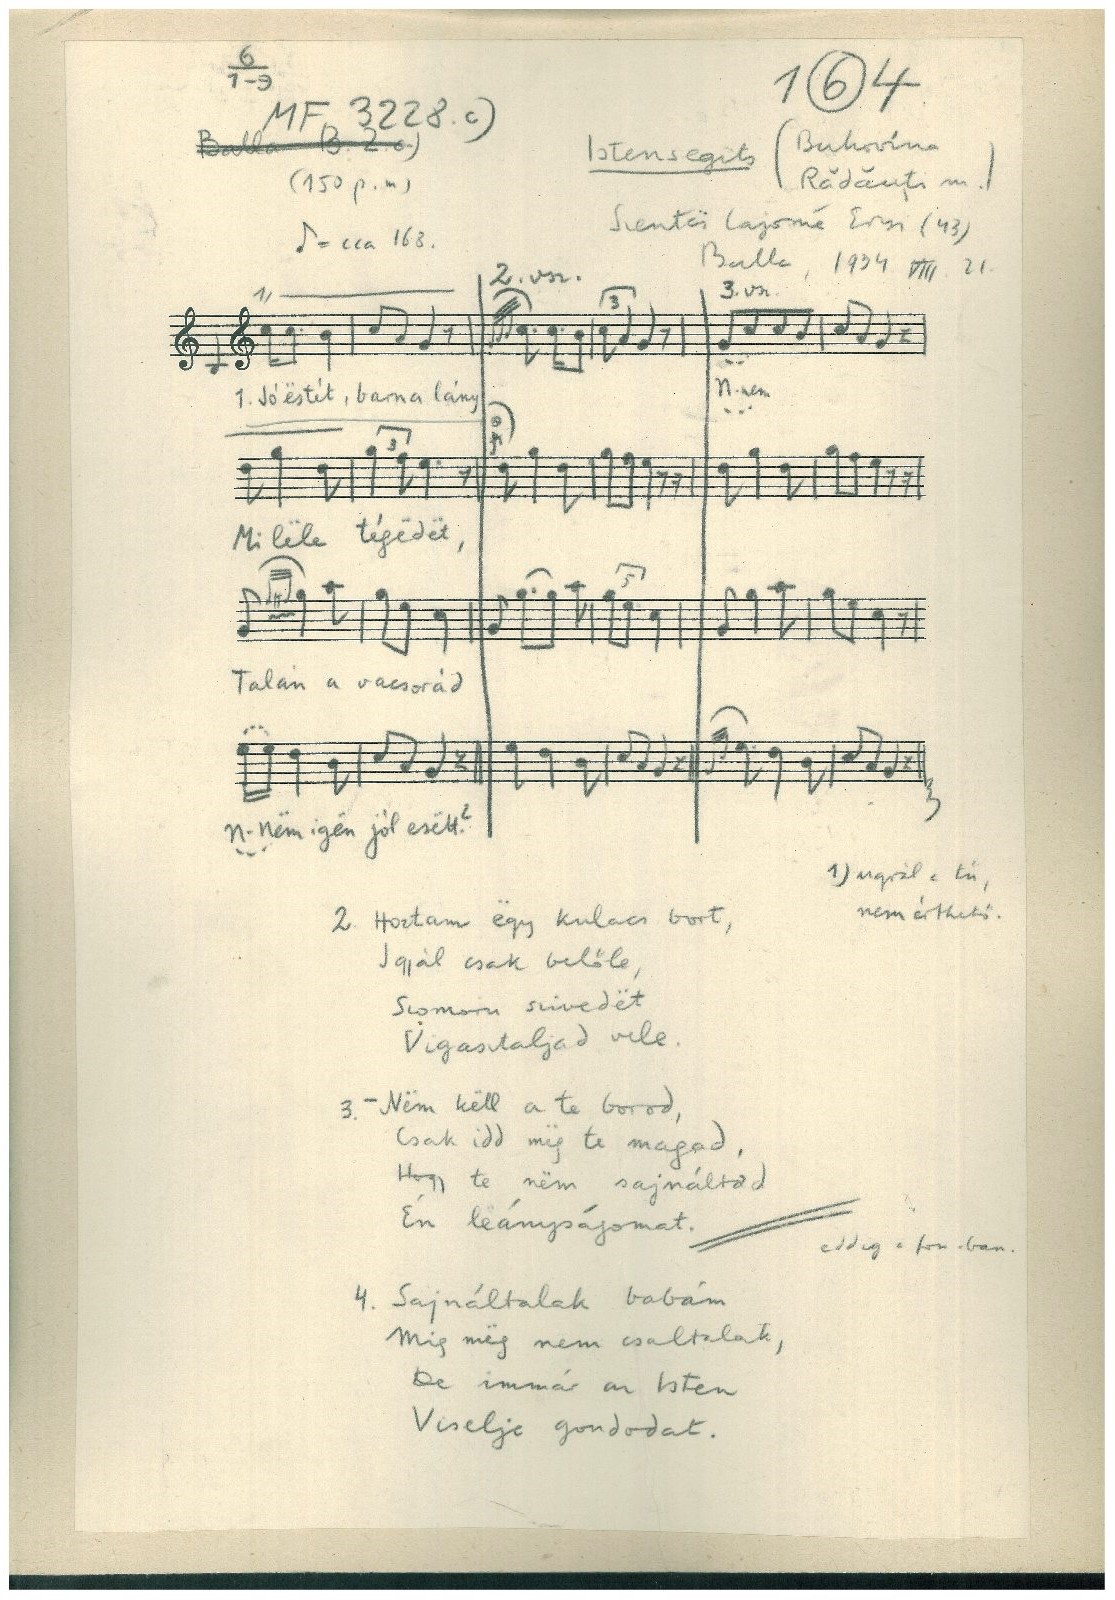 6
1-9
MF 3228.c)
1 6 4
Balla B. 2.a)
(150 p.m)
Istensegits (Bukovina
Rădăuţi m.)
♪ = cca 168.
Szentes Lajosné Erzsi (43)
Balla, 1934 VIII. 21.
1) 2. vsz. 3. vsz.
3
1. Jó ëstít, barna lány
N-nem
3
Mi lële tégëdët,
5
Talán a vacsorád
N-nëm igën jól esëtt?
1) ugrál a tű,
nem érthető.
2. Hoztam ëgy kulacs bort,
Igyál csak belőle,
Szomoru szivedët
Vigasztaljad vele.
3. – Nëm këll a te borod,
Csak idd mëg te magad,
Hogy te nëm sajnáltad
Én leányságomat.
eddig a fon.-ban.
4. Sajnáltalak babám
Mig mëg nem csaltalak,
De immár az Isten
Viselje gondodat.